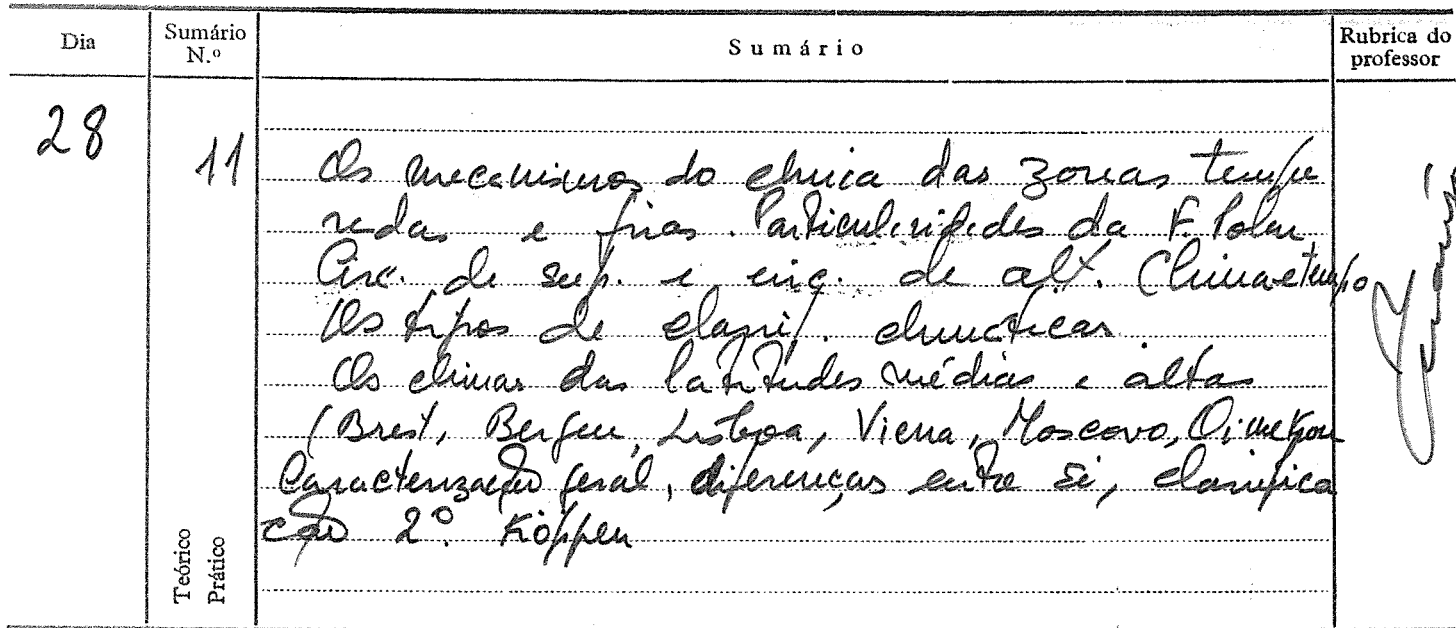 Dia
Sumário
N.º
Sumário
Rubrica do
professor
28
11
Os mecanismos do clima das zonas tempe
radas e frias. Particularidades da F. Polar
Circ. de sup. e circ. de alt. Clima e tempo
Os tipos de classif. climáticas.
Os climas das latitudes médias e altas
(Brest, Bergen, Lisboa, Viena, Moscovo, Oimekon
Caracterização geral, diferenças entre si, classifica
ção 2º. Köppen
Teórico
Prático